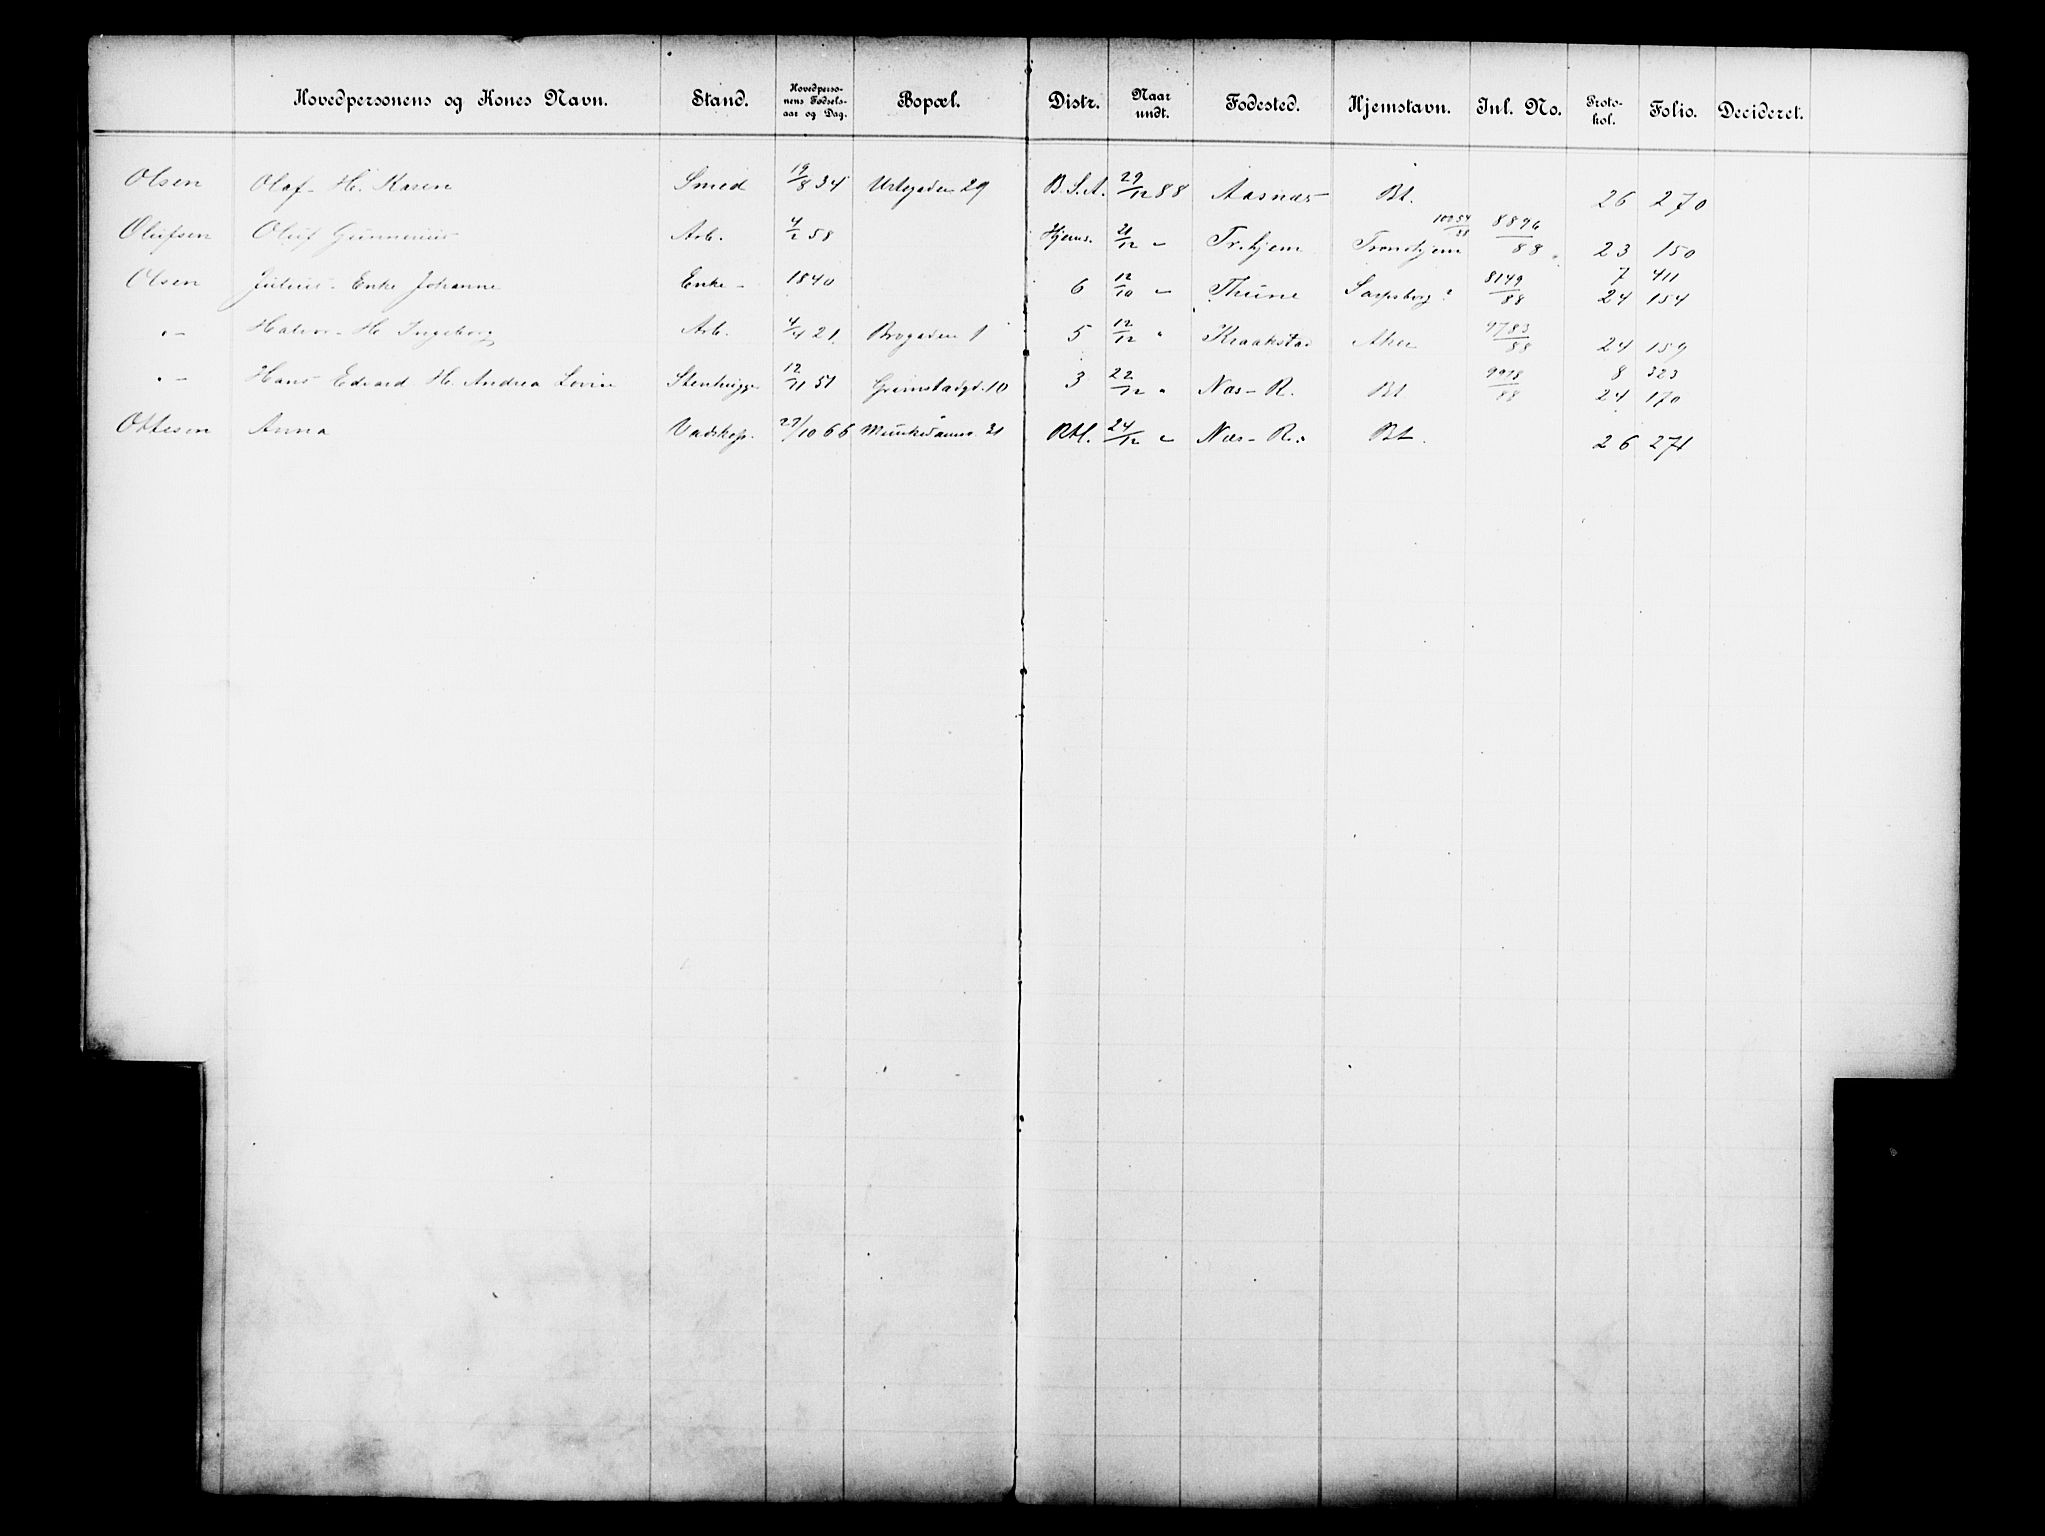 Hovedpersonens og Kones Navn. Stand. Hovedperso-nens Fødsels-aar og Dag. Bopæl. Distr. Naar undt. Fødested. Hjemstavn. Inl. No. Proto-kol. Folio. Decideret.
Olsen Olaf - H. Karen Smed 19/8 34 Urtegaden 29 B.S.A. 29/12 88 Aasnæs Bt. 26 270
Olufsen Oluf Gunnerius Arb. 4/2 58 Hjems. 21/12 " Tr.hjem Trondhjem 8896/88 23 150
Olsen Julius - Enke Johanne Enke - 1840 6 12/10 " Thune Sarpsborg? 8149/88 7 411
24 154
" - Halvor - H. Ingeborg Arb. 4/4 21 Brogaden 1 5 12/12 " Kraakstad Aker 9783/88 24 159
" - Hans Edvard H. Andrea Lovise Stenhugger 12/11 51 Grimstadgd. 10 3 22/12 " Næs - R. Bt 9918/88 8 323
24 170
Ottesen Anna Vadskep. 27/10 66 Munkedamsv. 21 Rtl. 24/12 " Næs - R. Bt. 26 271